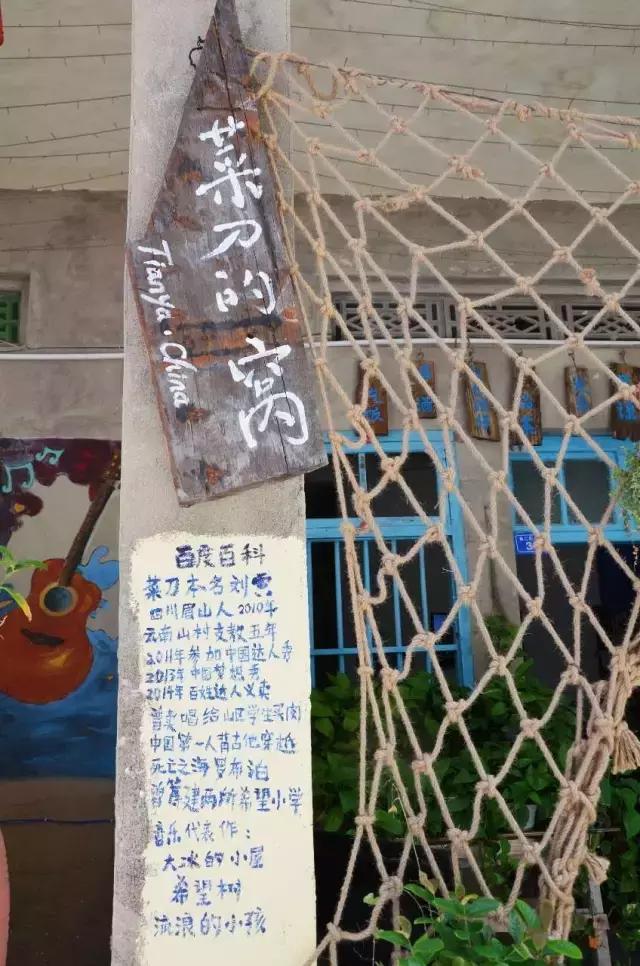 菜刀的窝
Tianya·China
百度百科
菜刀本名刘寅
四川眉山人2010年
云南山村支教五年
2011年参加中国达人秀
2013年中国梦想秀
2014年百姓达人义卖
曾卖唱给山区学生买肉
中国第一人背吉他穿越
死亡之海罗布泊
曾筹建两所希望小学
音乐代表作：
大冰的小屋
希望树
流浪的小孩